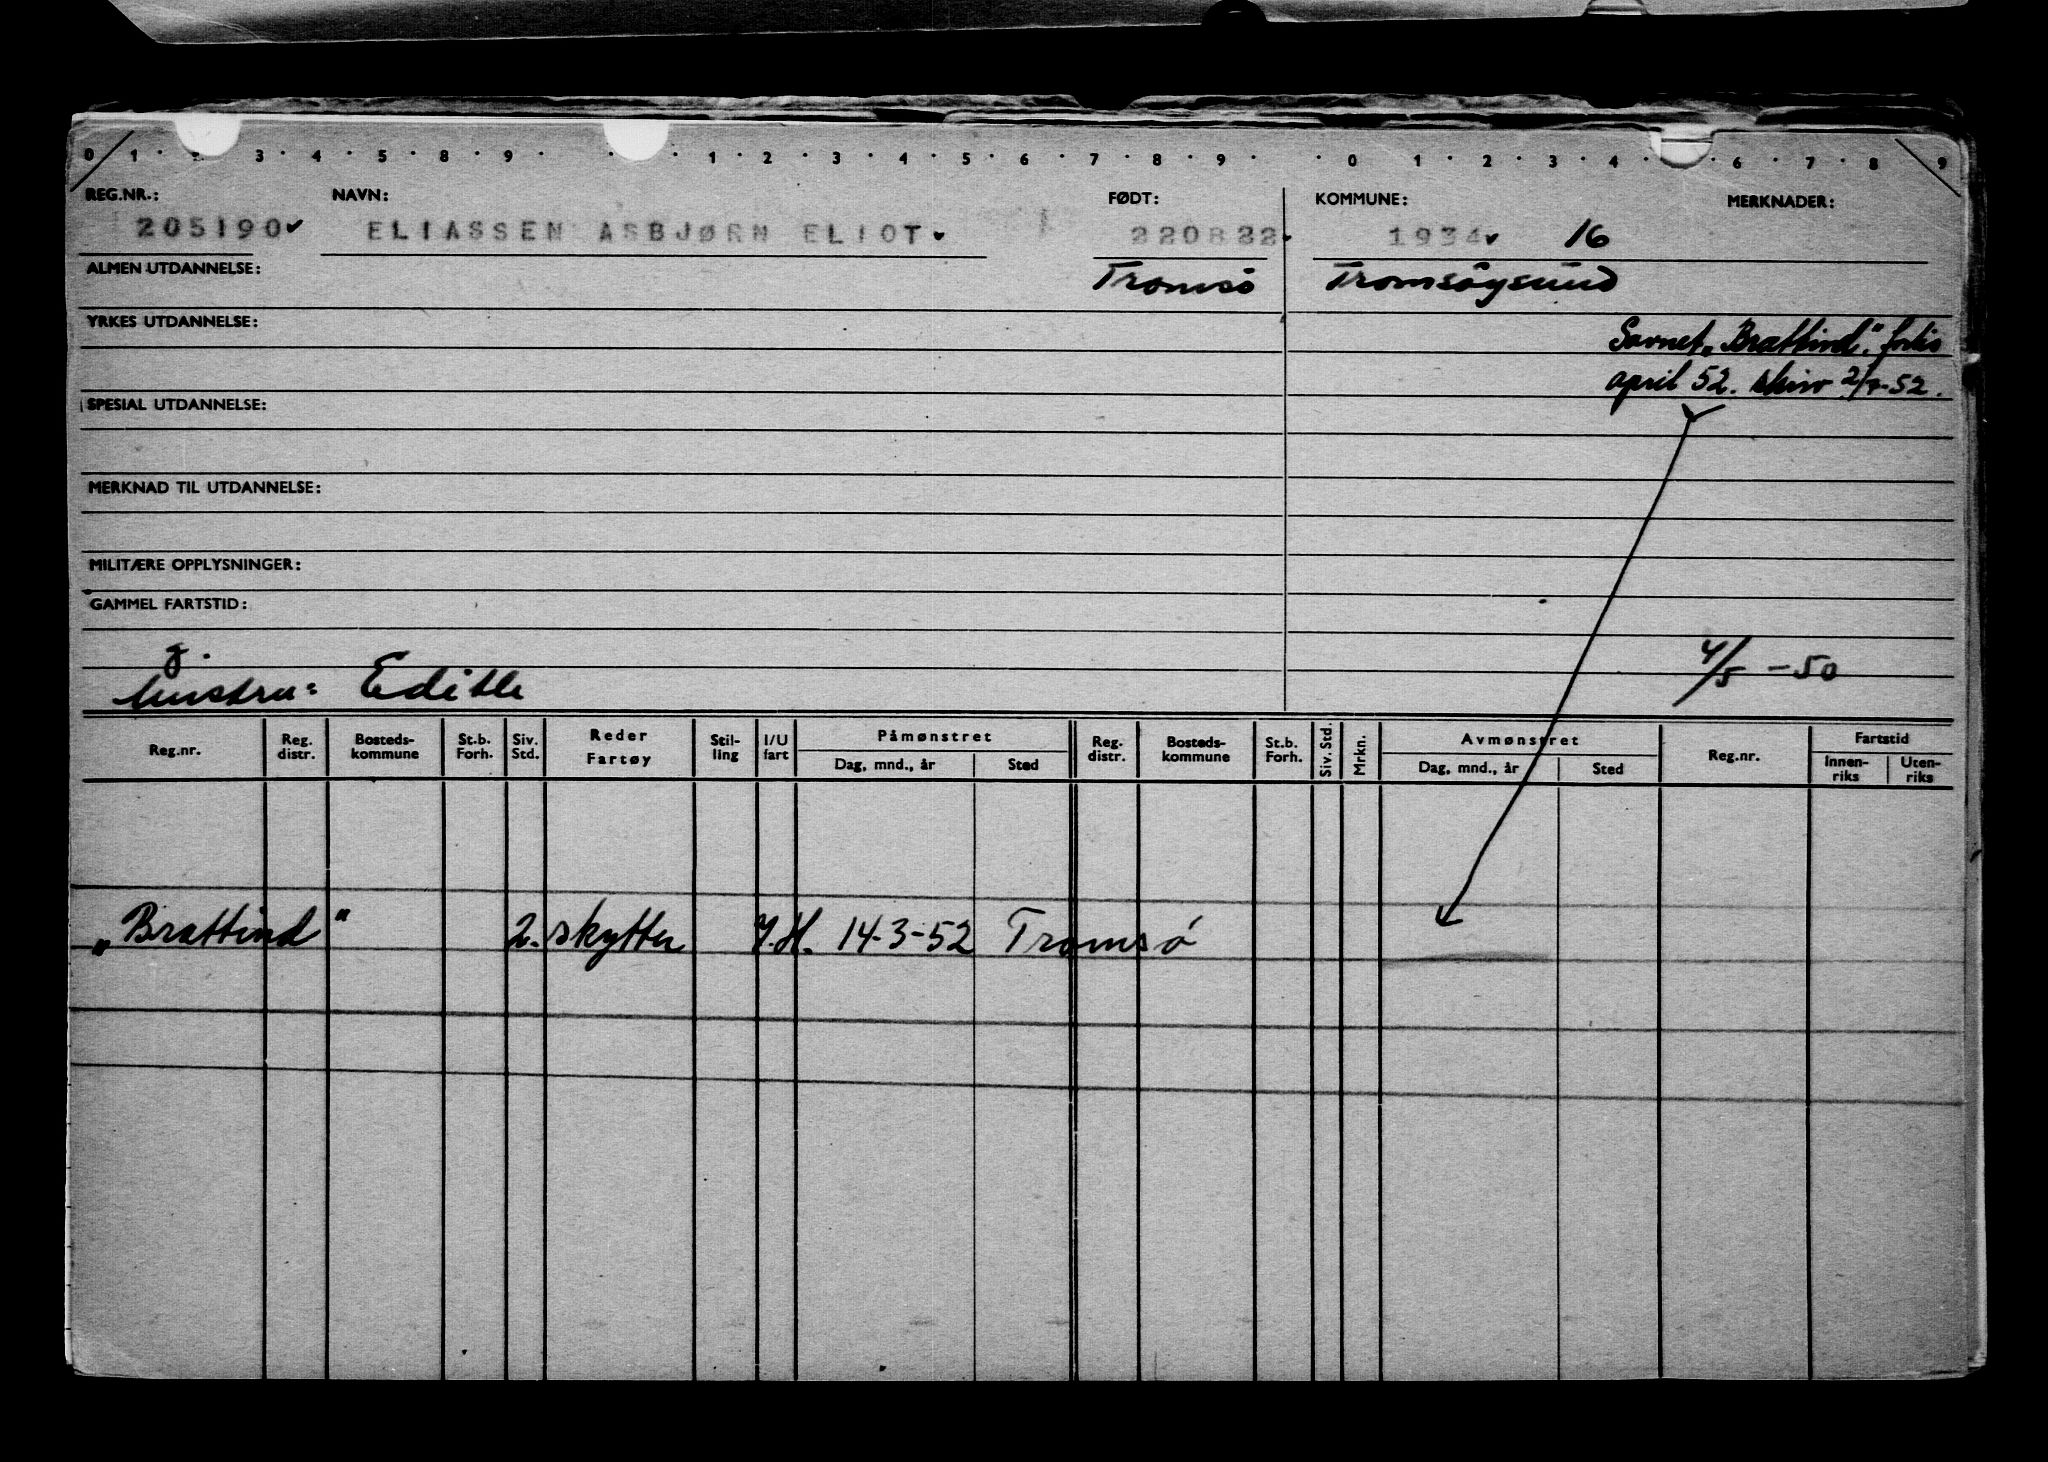 0 1 2 3 4 5 8 9 1 2 3 4 5 6 7 8 9 0 1 2 3 4 5 6 7 8 9
REG.NR.: NAVN: FØDT: KOMMUNE: MERKNADER:
205190 ELIASSEN ASBJØRN ELIOT 220822 1934 16
ALMEN UTDANNELSE: Tromsö Tromsöysund
YRKES UTDANNELSE:
Savnet „Brattind" forlis
april 52. skriv 2/7-52.
SPESIAL UTDANNELSE:
MERKNAD TIL UTDANNELSE:
MILITÆRE OPPLYSNINGER:
GAMMEL FARTSTID:
g. 4/5-50
hustru: Edith
Reg.nr. Reg. distr. Bosteds-kommune St.b. Forh. Siv. Std. Reder Fartøy Stil-ling I/U fart Påmønstret Dag, mnd., år Sted Reg. distr. Bosteds-kommune St.b. Forh. Siv. Std. Mrkn. Avmønstret Dag, mnd., år Sted Reg.nr. Fartstid Innen-riks Uten-riks
„Brattind" 2. skytter 14-3-52 Tromsö